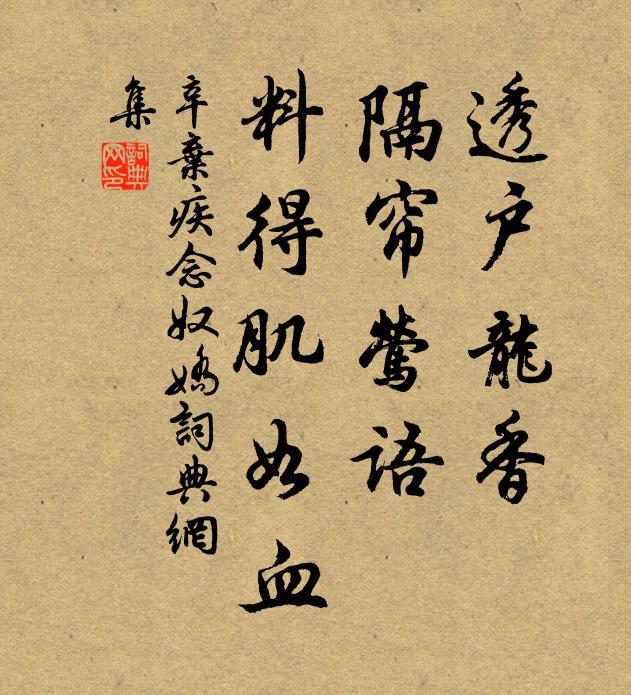 透户龍香
隔帘鶯語
料得肌如血
辛棄疾念奴嬌詞典網
集
詞典
网印